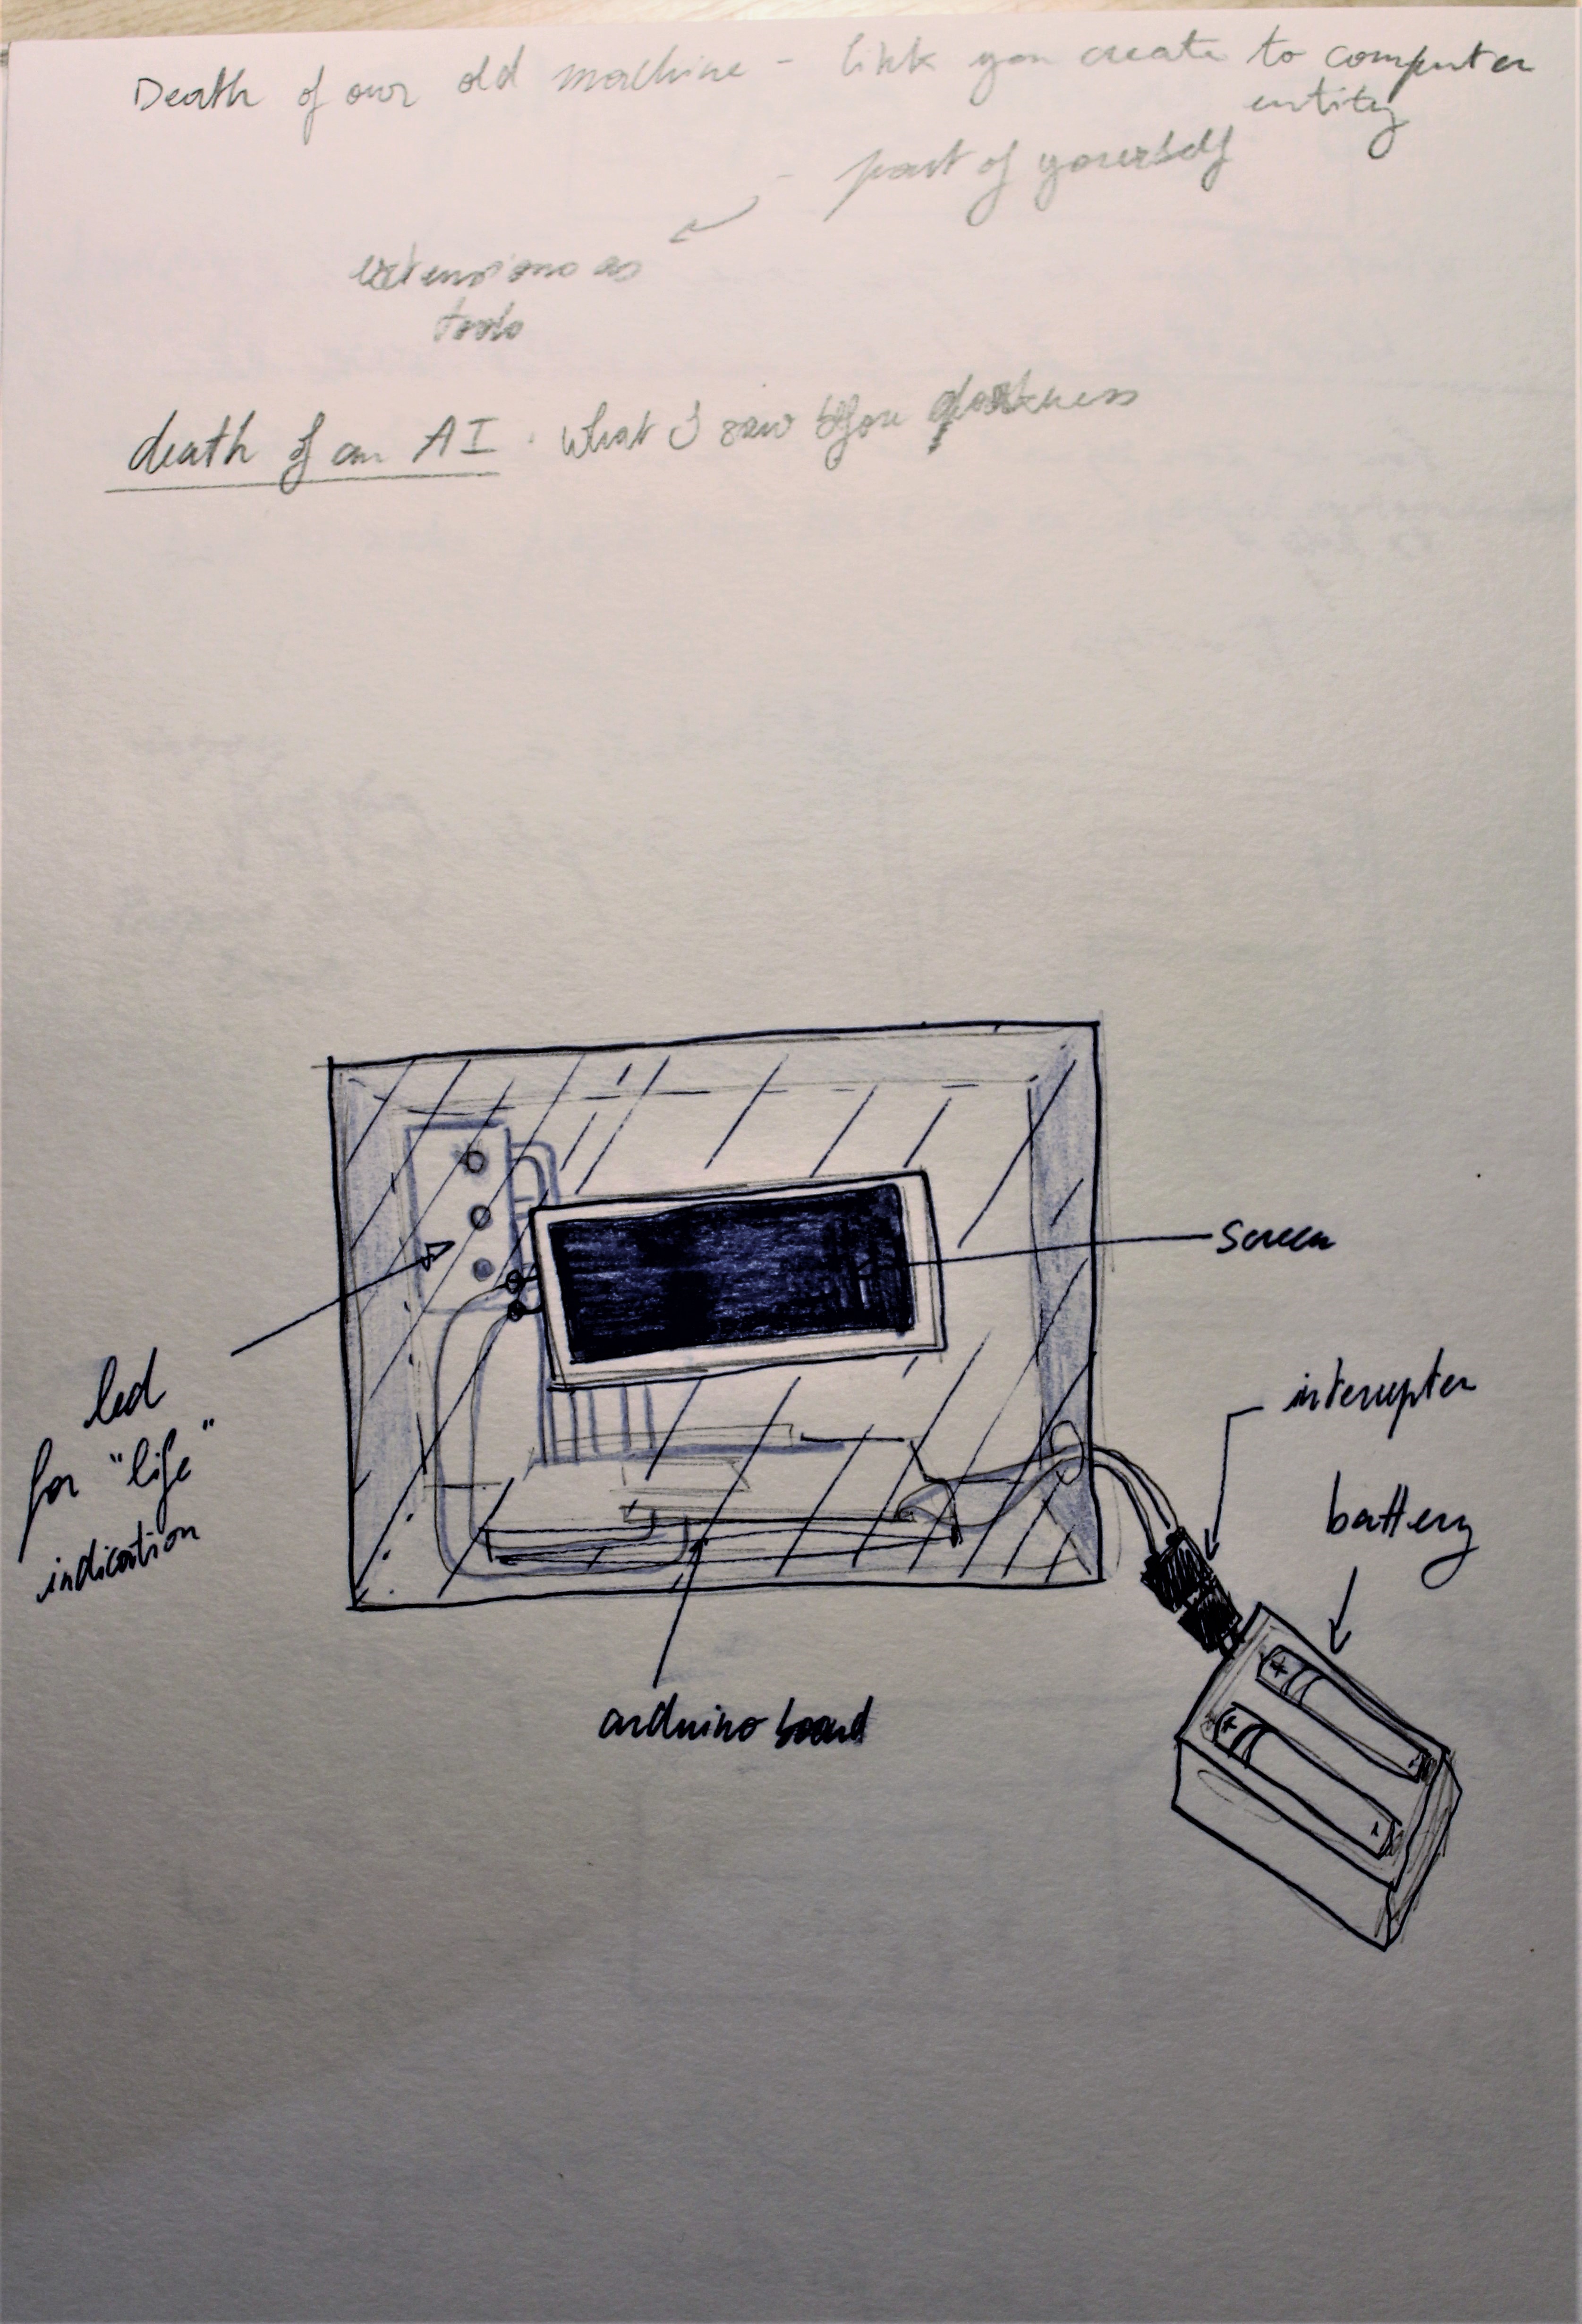 Death of our old machine - link you create to computer
entity
- part of yourself
extensions as
tools
death of an AI . What I saw before darkness
screen
led
for "life"
indication
interupter
battery
+
+
arduino board